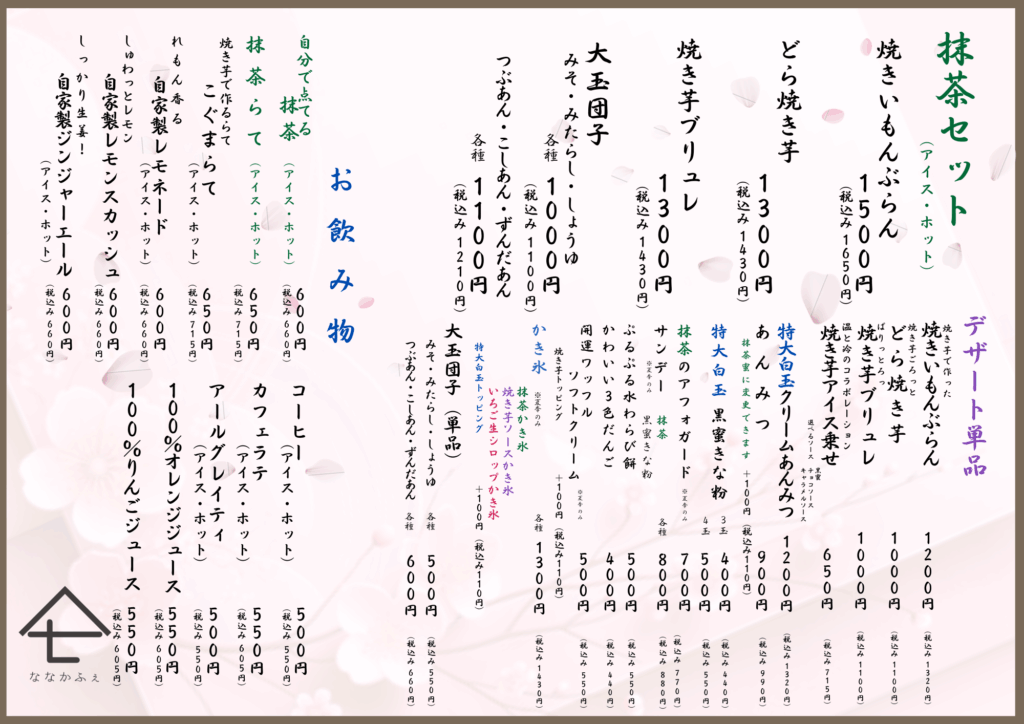 抹茶セット
（アイス・ホット）
焼きいもんぶらん
1500円
（税込み1650円）
どら焼き芋
1300円
（税込み1430円）
焼き芋ブリュレ
1300円
（税込み1430円）
大玉団子
みそ・みたらし・しょうゆ
各種 1000円
（税込み1100円）
つぶあん・こしあん・ずんだあん
各種 1100円
（税込み1210円）
デザート単品
焼き芋で作った
焼きいもんぶらん 1200円（税込み1320円）
焼き芋ごろっと
どら焼き芋 1000円（税込み1100円）
ぱりっとろっ
焼き芋ブリュレ 1000円（税込み1100円）
温と冷のコラボレーション
焼き芋アイス乗せ 650円（税込み715円）
選べるソース 黒蜜
チョコソース
キャラメルソース
特大白玉クリームあんみつ 1200円（税込み1320円）
あんみつ 900円（税込み990円）
抹茶蜜に変更できます ＋100円（税込み110円）
特大白玉 黒蜜きな粉 3玉 400円（税込み440円）
4玉 500円（税込み550円）
抹茶のアフォガード ※夏季のみ 700円（税込み770円）
サンデー 抹茶 各種 800円（税込み880円）
※夏季のみ 黒蜜きな粉
ぷるぷる水わらび餅 500円（税込み550円）
かわいい3色だんご 400円（税込み440円）
開運ワッフル 500円（税込み550円）
ソフトクリーム ※夏季のみ
焼き芋トッピング ＋100円（税込み110円）
かき氷 ※夏季のみ 各種 1300円（税込み1430円）
抹茶かき氷
焼き芋ソースかき氷
いちご生シロップかき氷
特大白玉トッピング ＋100円（税込み110円）
大玉団子（単品）
みそ・みたらし・しょうゆ 各種 500円（税込み550円）
つぶあん・こしあん・ずんだあん 各種 600円（税込み660円）
お飲み物
自分で点てる
抹茶（アイス・ホット） 600円
（税込み660円）
抹茶らて（アイス・ホット） 650円
（税込み715円）
焼き芋で作るらて
こぐまらて
（アイス・ホット） 650円
（税込み715円）
れもん香る
自家製レモネード
（アイス・ホット） 600円
（税込み660円）
しゅわっとレモン
自家製レモンスカッシュ 600円
（税込み660円）
しっかり生姜！
自家製ジンジャーエール 600円
（アイス・ホット）
（税込み660円）
コーヒー
（アイス・ホット） 500円
（税込み550円）
カフェラテ
（アイス・ホット） 550円
（税込み605円）
アールグレイティ
（アイス・ホット） 500円
（税込み550円）
100%オレンジジュース 550円
（税込み605円）
100%りんごジュース 550円
（税込み605円）
ななかふぇ